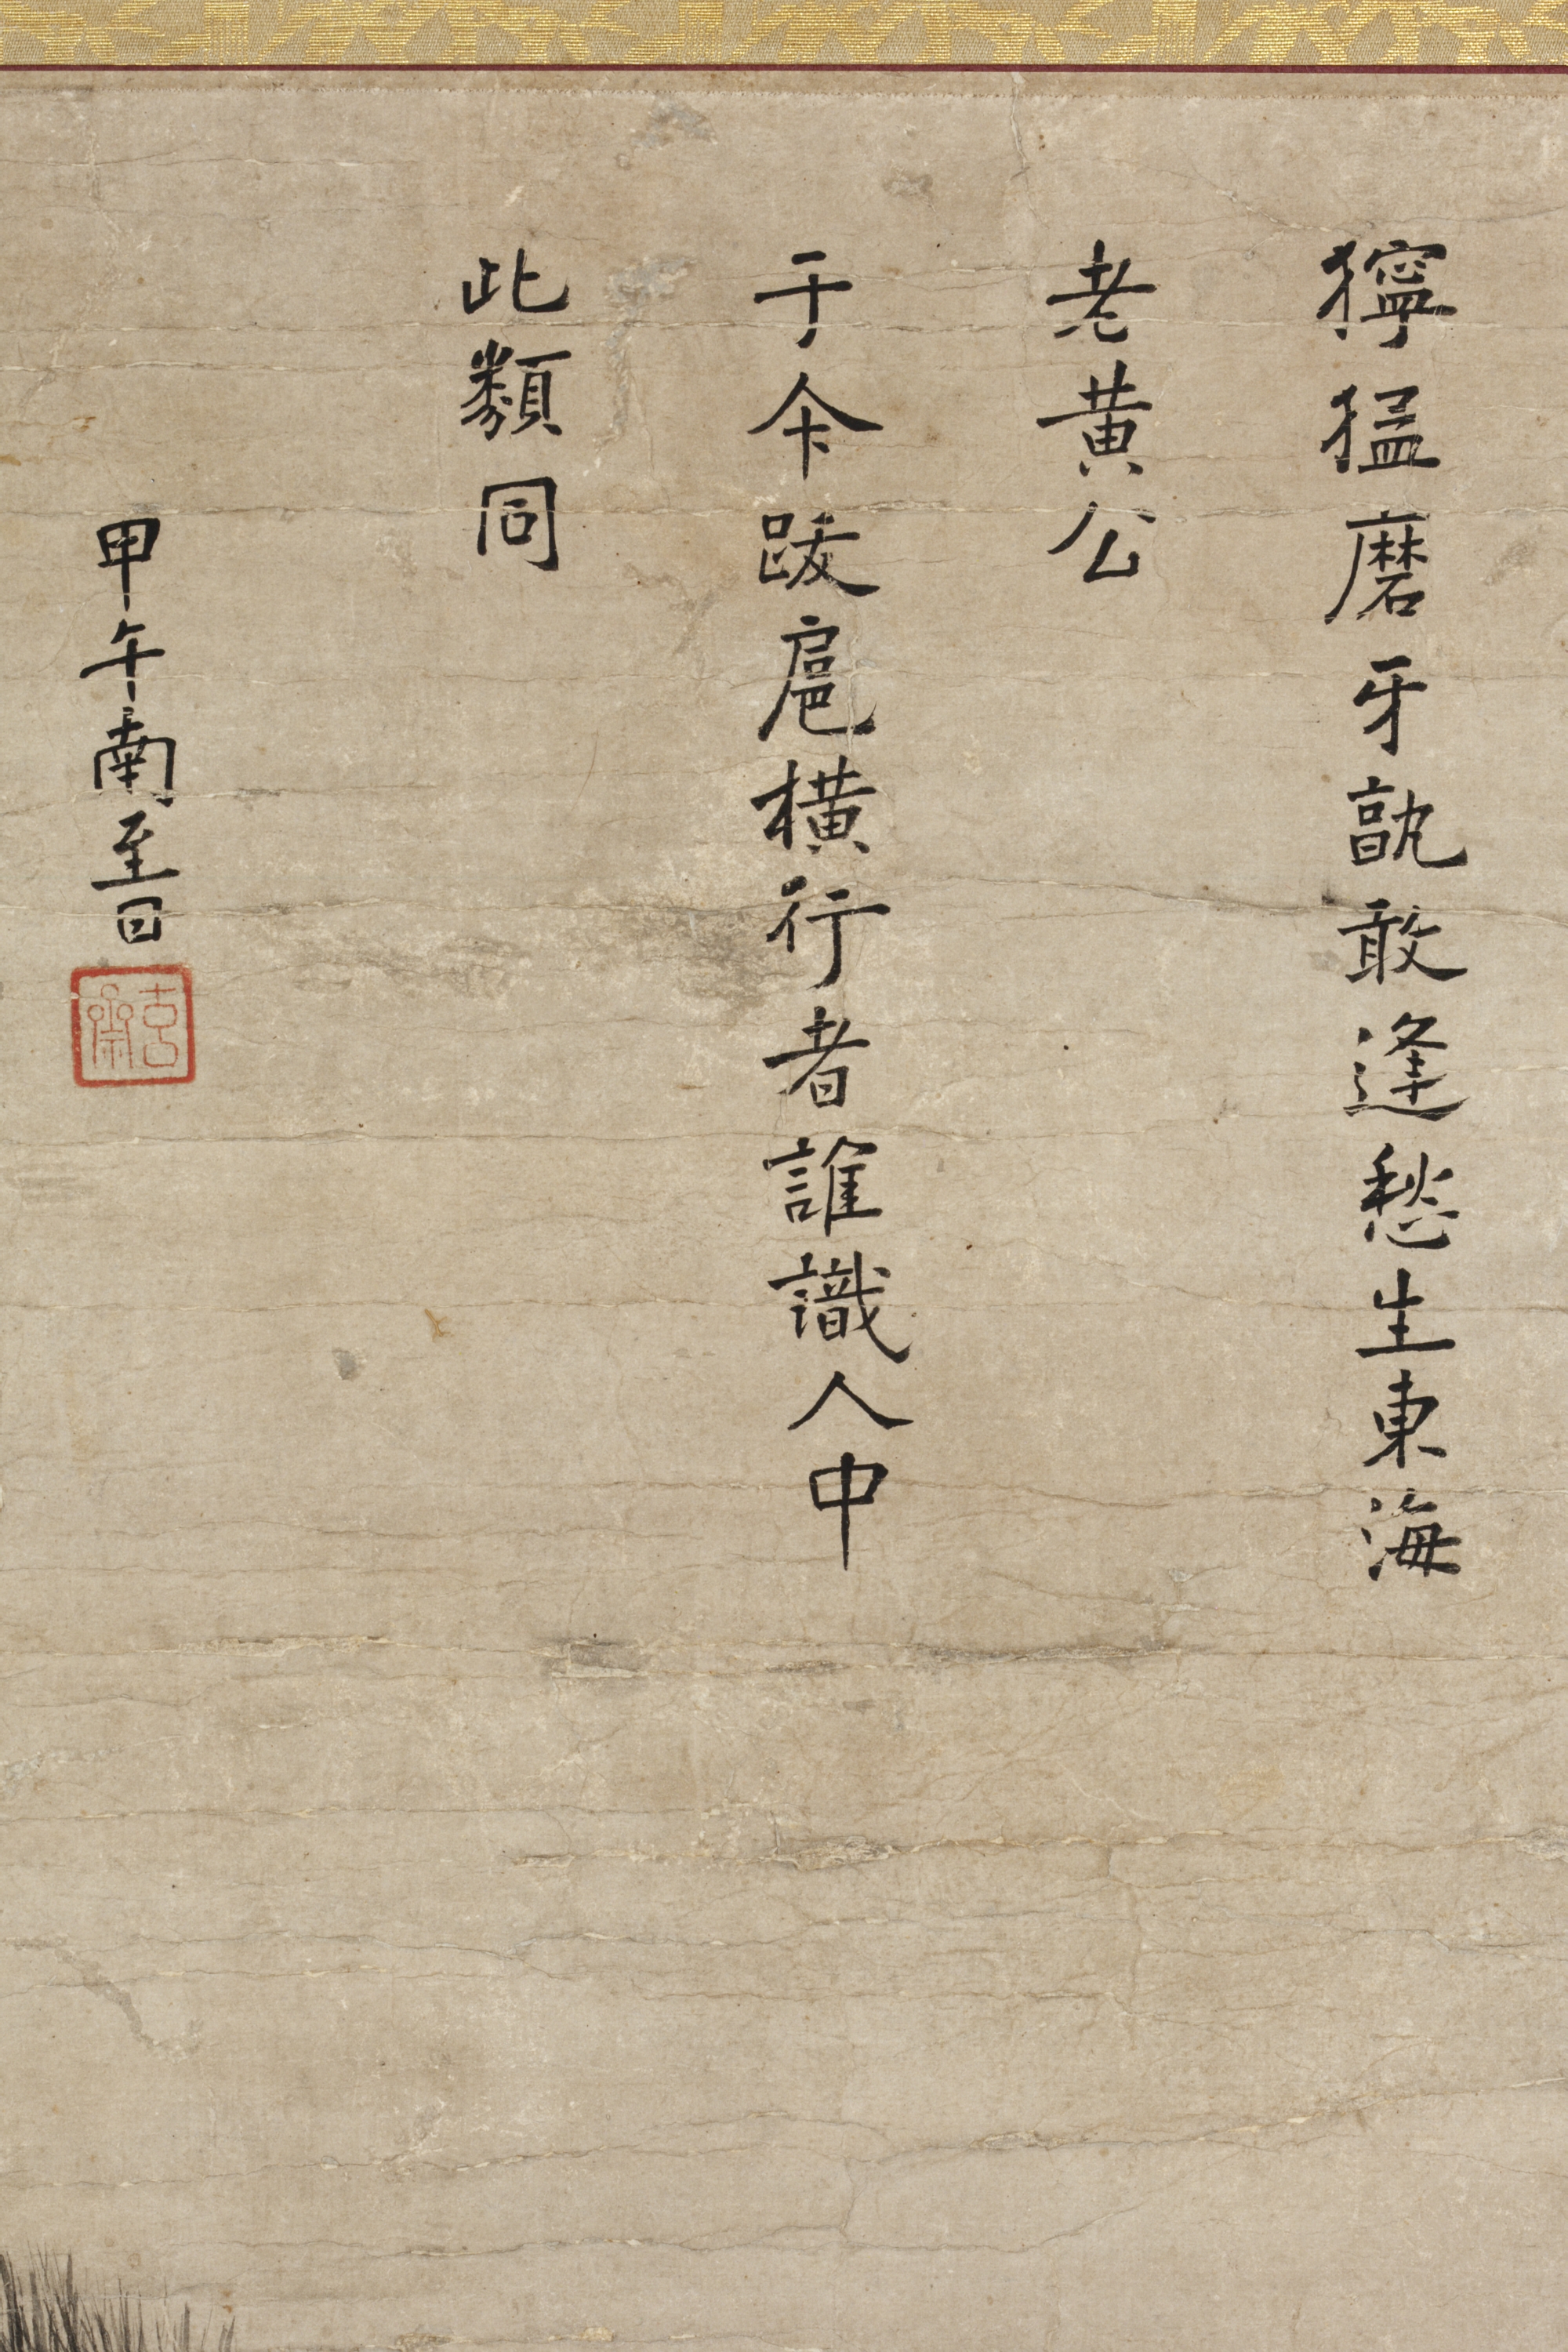 獰猛磨牙孰敢逢愁生東海
老黄公
于今跋扈横行者誰識人中
此類同
甲午南至日